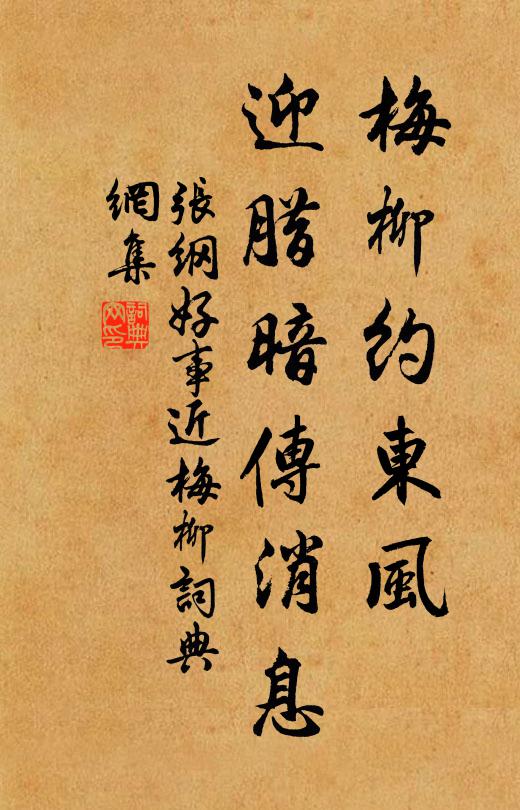 梅柳約東風
迎腊暗傳消息
張綱好事近梅柳詞典
網集
詞典